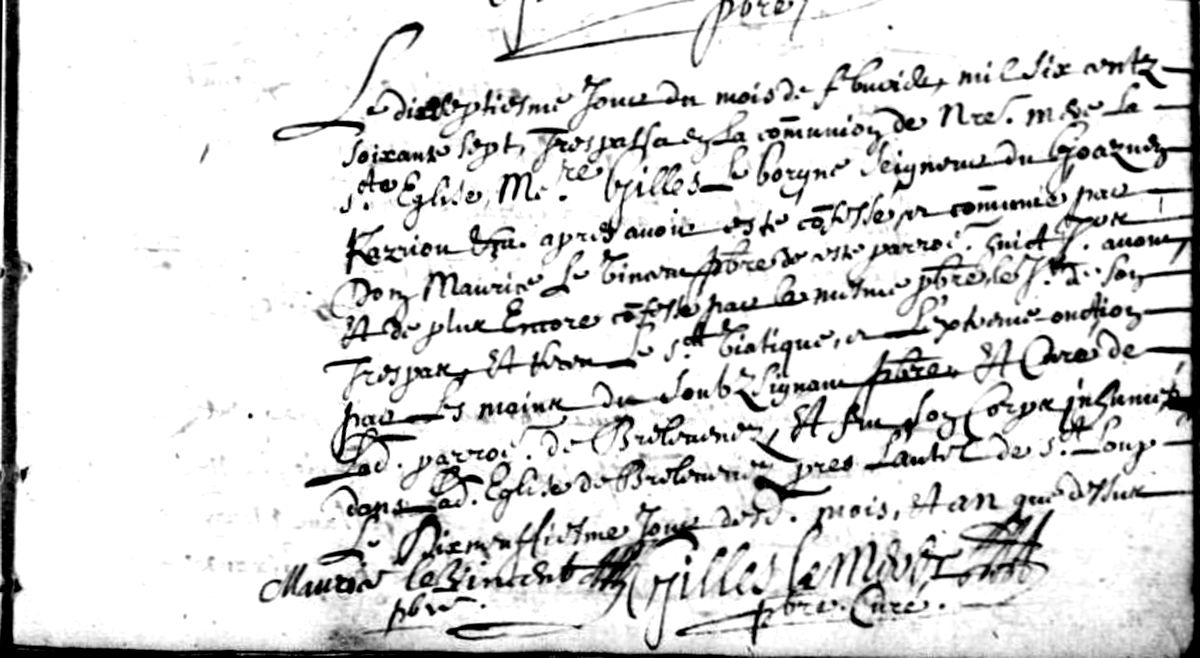 pbre
Le dixseptiesme Jour du mois de febvrier, mil six centz
soixante sept, Trespassa en La com̃union de Nre. mere La
ste. Eglise, Me.re Gilles Le borgne seigneur du Goaznen
Kerriou &a. apres avoir esté cõfessé et com̃unié par
Dom Maurice Le Vincent pbre de ceste parroe. huict Jour avant,
Et de plus Encore cõfessé par le mesme pbre, le Jr. de son
Trespas, Et Receu Le st. Viatique, et L'extreme onction
par Les mains du soubzsignant pbre, Et Curé de
Lad. parroe. de Brelevenez, Et fut son Corps inhumé
dans Lad. Eglise de Brelevenez pres L'autel de st. Loup
Le Dixneuffiesme Jour desd. mois, Et an que dessus
Maurice le Vincent Gilles le
pbre. pbre. Curé.